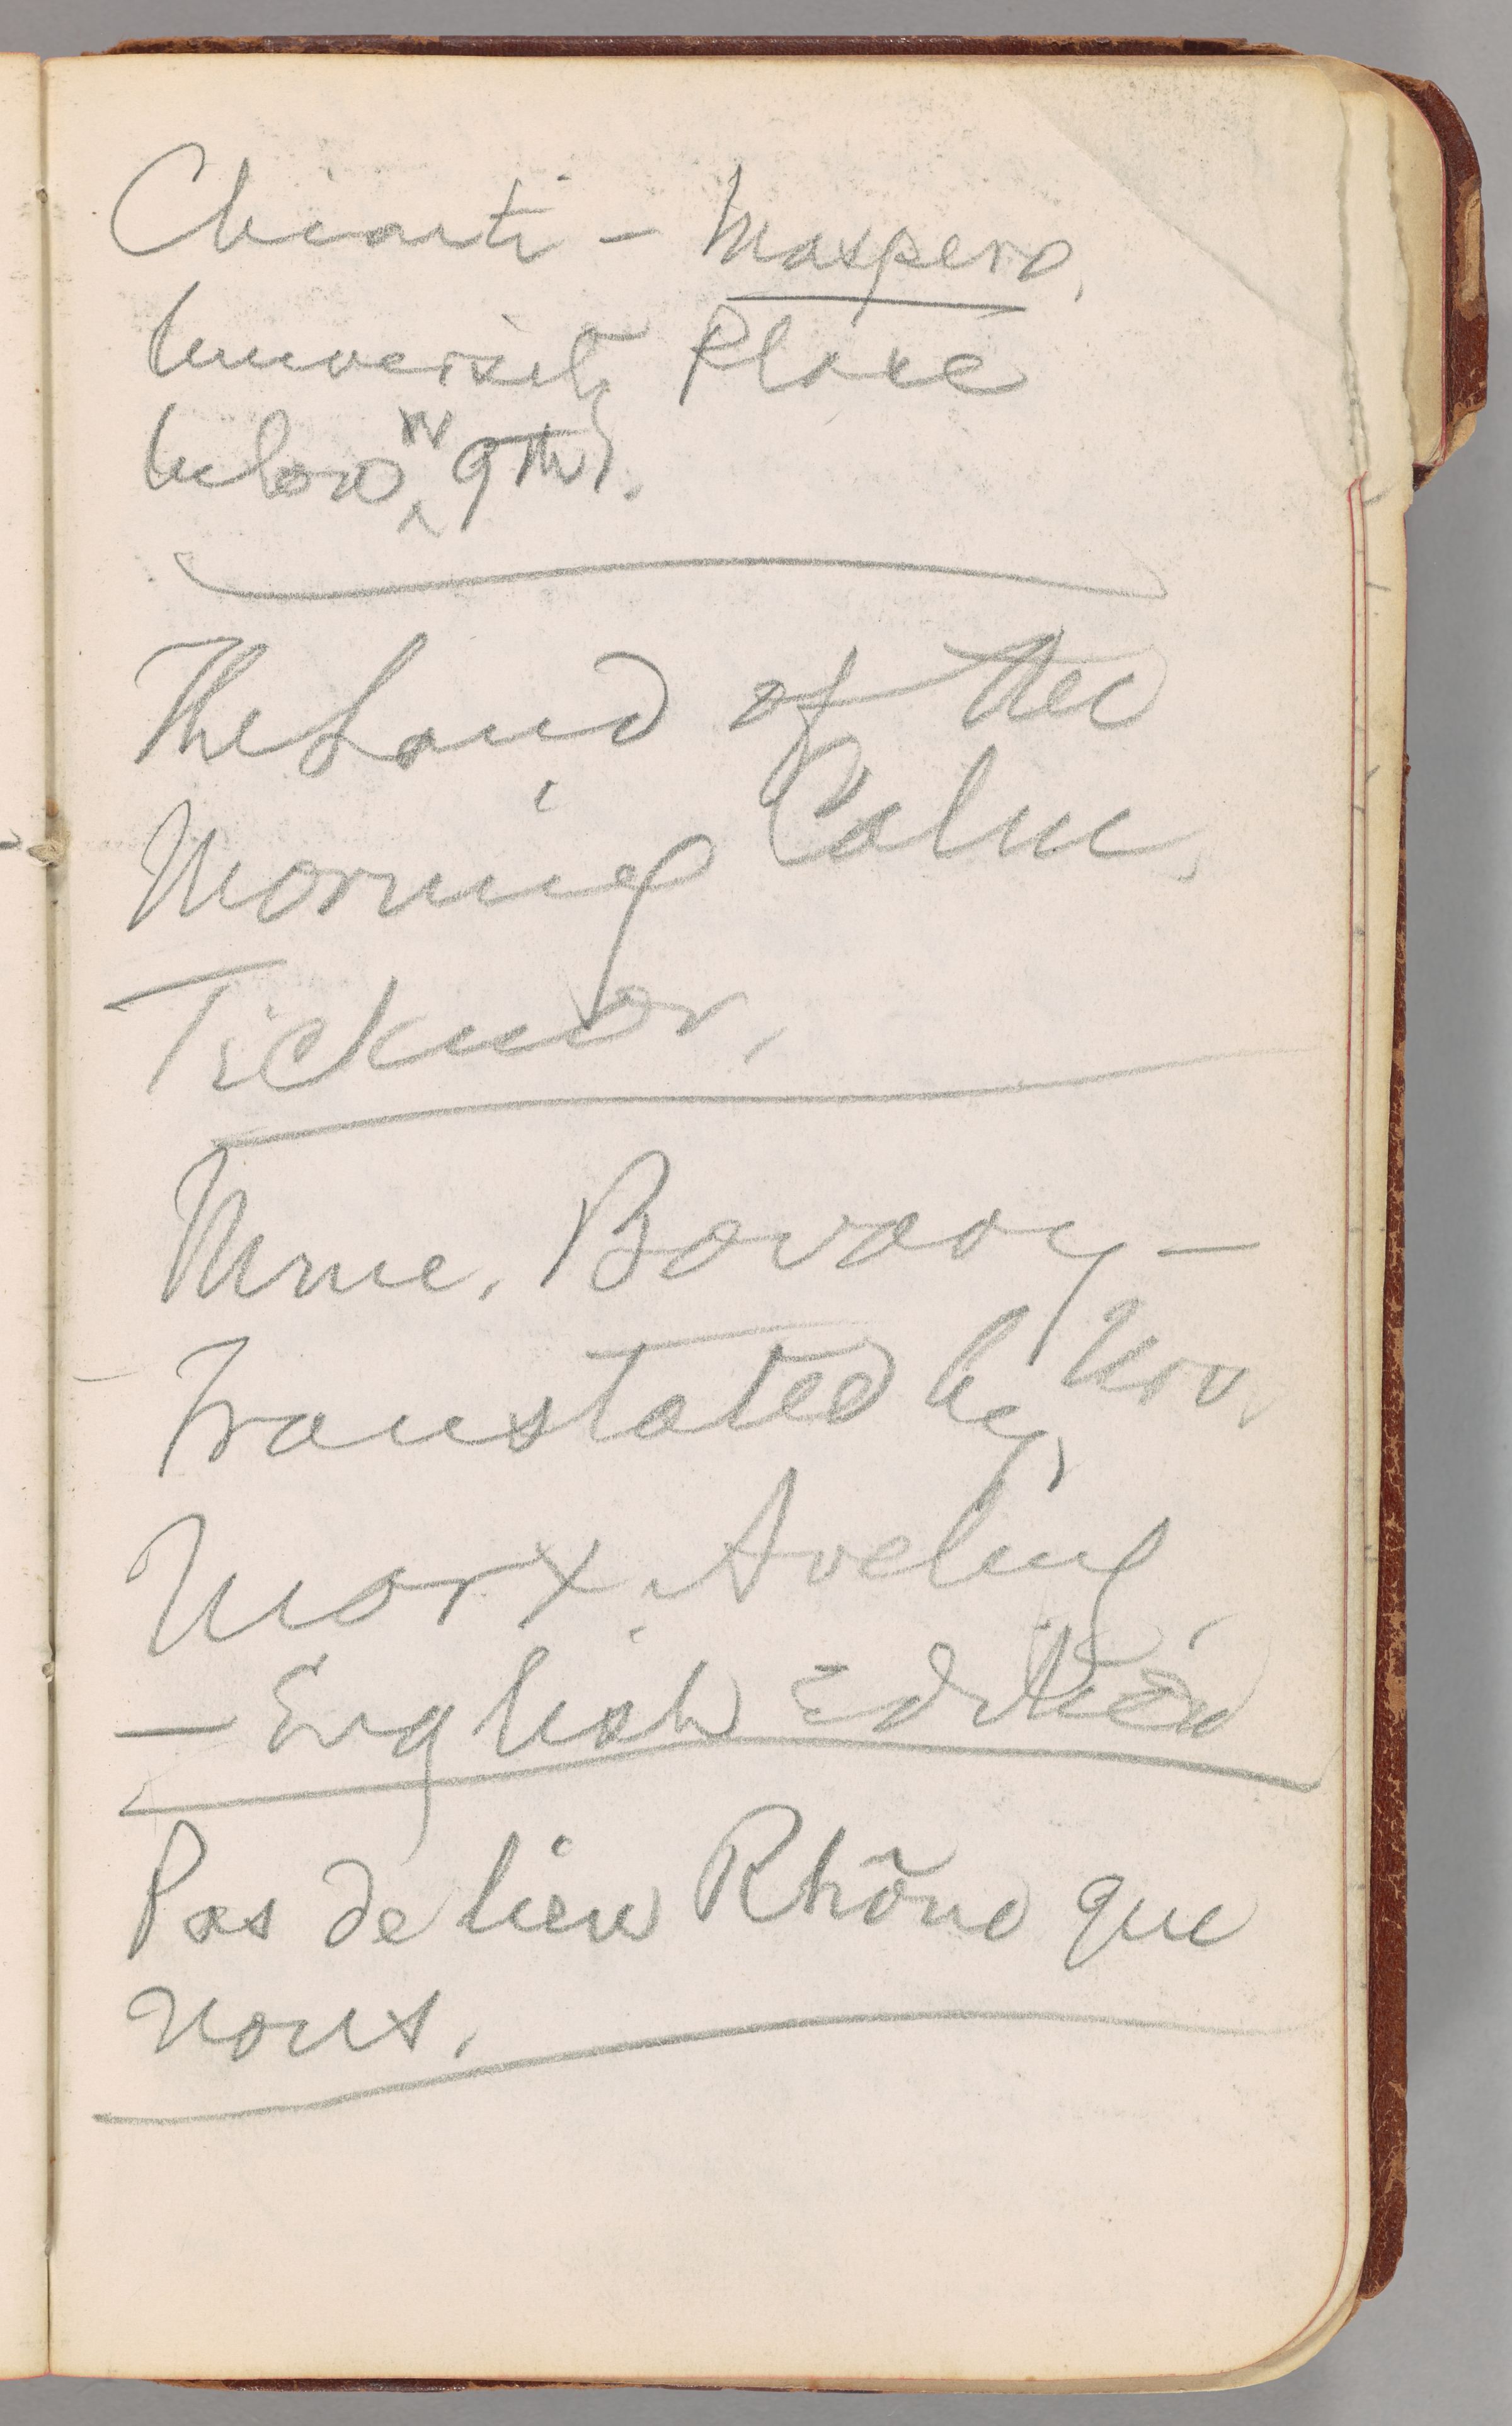 Chianti - Maspero,
University Place
below W 9th.
The Land of the
Morning Calm,
Ticknor,
Mme. Bovary -
Translated by Mrs.
Marx Aveling,
- English Edition
Pas de lieu Rhône que
nous.